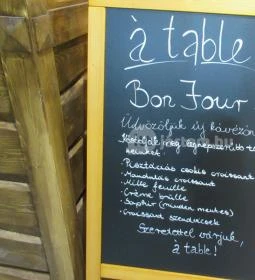 à table
Bon Jour
Üdvözöljük új kávézón
Kóstolják meg legnépszerűbb te
keinket:
• Pisztáciás cookie croissant
• Mandulás croissant
• Mille feuille
• Crème brûlle
• Saphir (minden mentes)
• Croissant szendvicsek
Szeretettel várjuk,
à table!